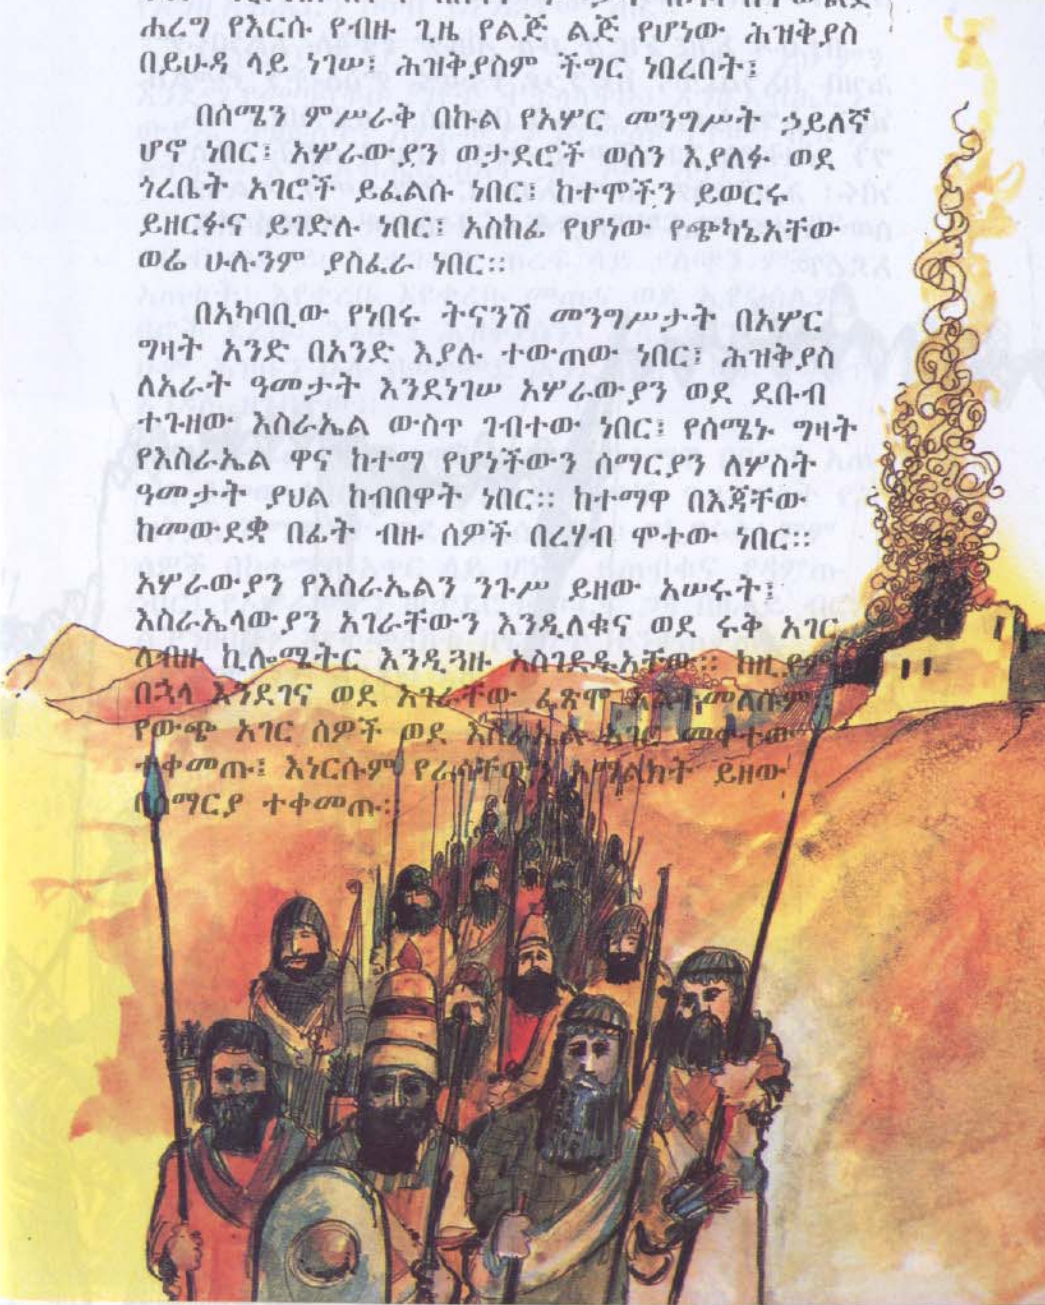 ሐረግ የእርሱ የብዙ ጊዜ የልጅ ልጅ የሆነው ሕዝቅያስ
በይሁዳ ላይ ነገሠ፤ ሕዝቅያስም ችግር ነበረበት፤
በሰሜን ምሥራቅ በኩል የአሦር መንግሥት ኃይለኛ
ሆኖ ነበር፤ አሦራውያን ወታደሮች ወሰን እያለፉ ወደ
ጎረቤት አገሮች ይፈልሱ ነበር፤ ከተሞችን ይወርሩ
ይዘርፉና ይገድሉ ነበር፤ አስከፊ የሆነው የጭካኔአቸው
ወሬ ሁሉንም ያስፈራ ነበር።
በአካባቢው የነበሩ ትናንሽ መንግሥታት በአሦር
ግዛት አንድ በአንድ እያሉ ተውጠው ነበር፤ ሕዝቅያስ
ለአራት ዓመታት እንደነገሠ አሦራውያን ወደ ደቡብ
ተጉዘው እስራኤል ውስጥ ገብተው ነበር፤ የሰሜኑ ግዛት
የእስራኤል ዋና ከተማ የሆነችውን ሰማርያን ለሦስት
ዓመታት ያህል ከብበዋት ነበር። ከተማዋ በእጃቸው
ከመውደቋ በፊት ብዙ ሰዎች በረሃብ ሞተው ነበር።
አሦራውያን የእስራኤልን ንጉሥ ይዘው አሠሩት፤
እስራኤላውያን አገራቸውን እንዲለቁና ወደ ሩቅ አገር
ለብዙ ኪሎሜትር እንዲጓዙ አስገደዱአቸው። ከዚያም
በኋላ እንደገና ወደ አገራቸው ፈጽሞ አልተመለሱም
የውጭ አገር ሰዎች ወደ እስራኤል አገር መጥተው
ተቀመጡ፤ እነርሱም የራሳቸውን አማልክት ይዘው
በሰማርያ ተቀመጡ።